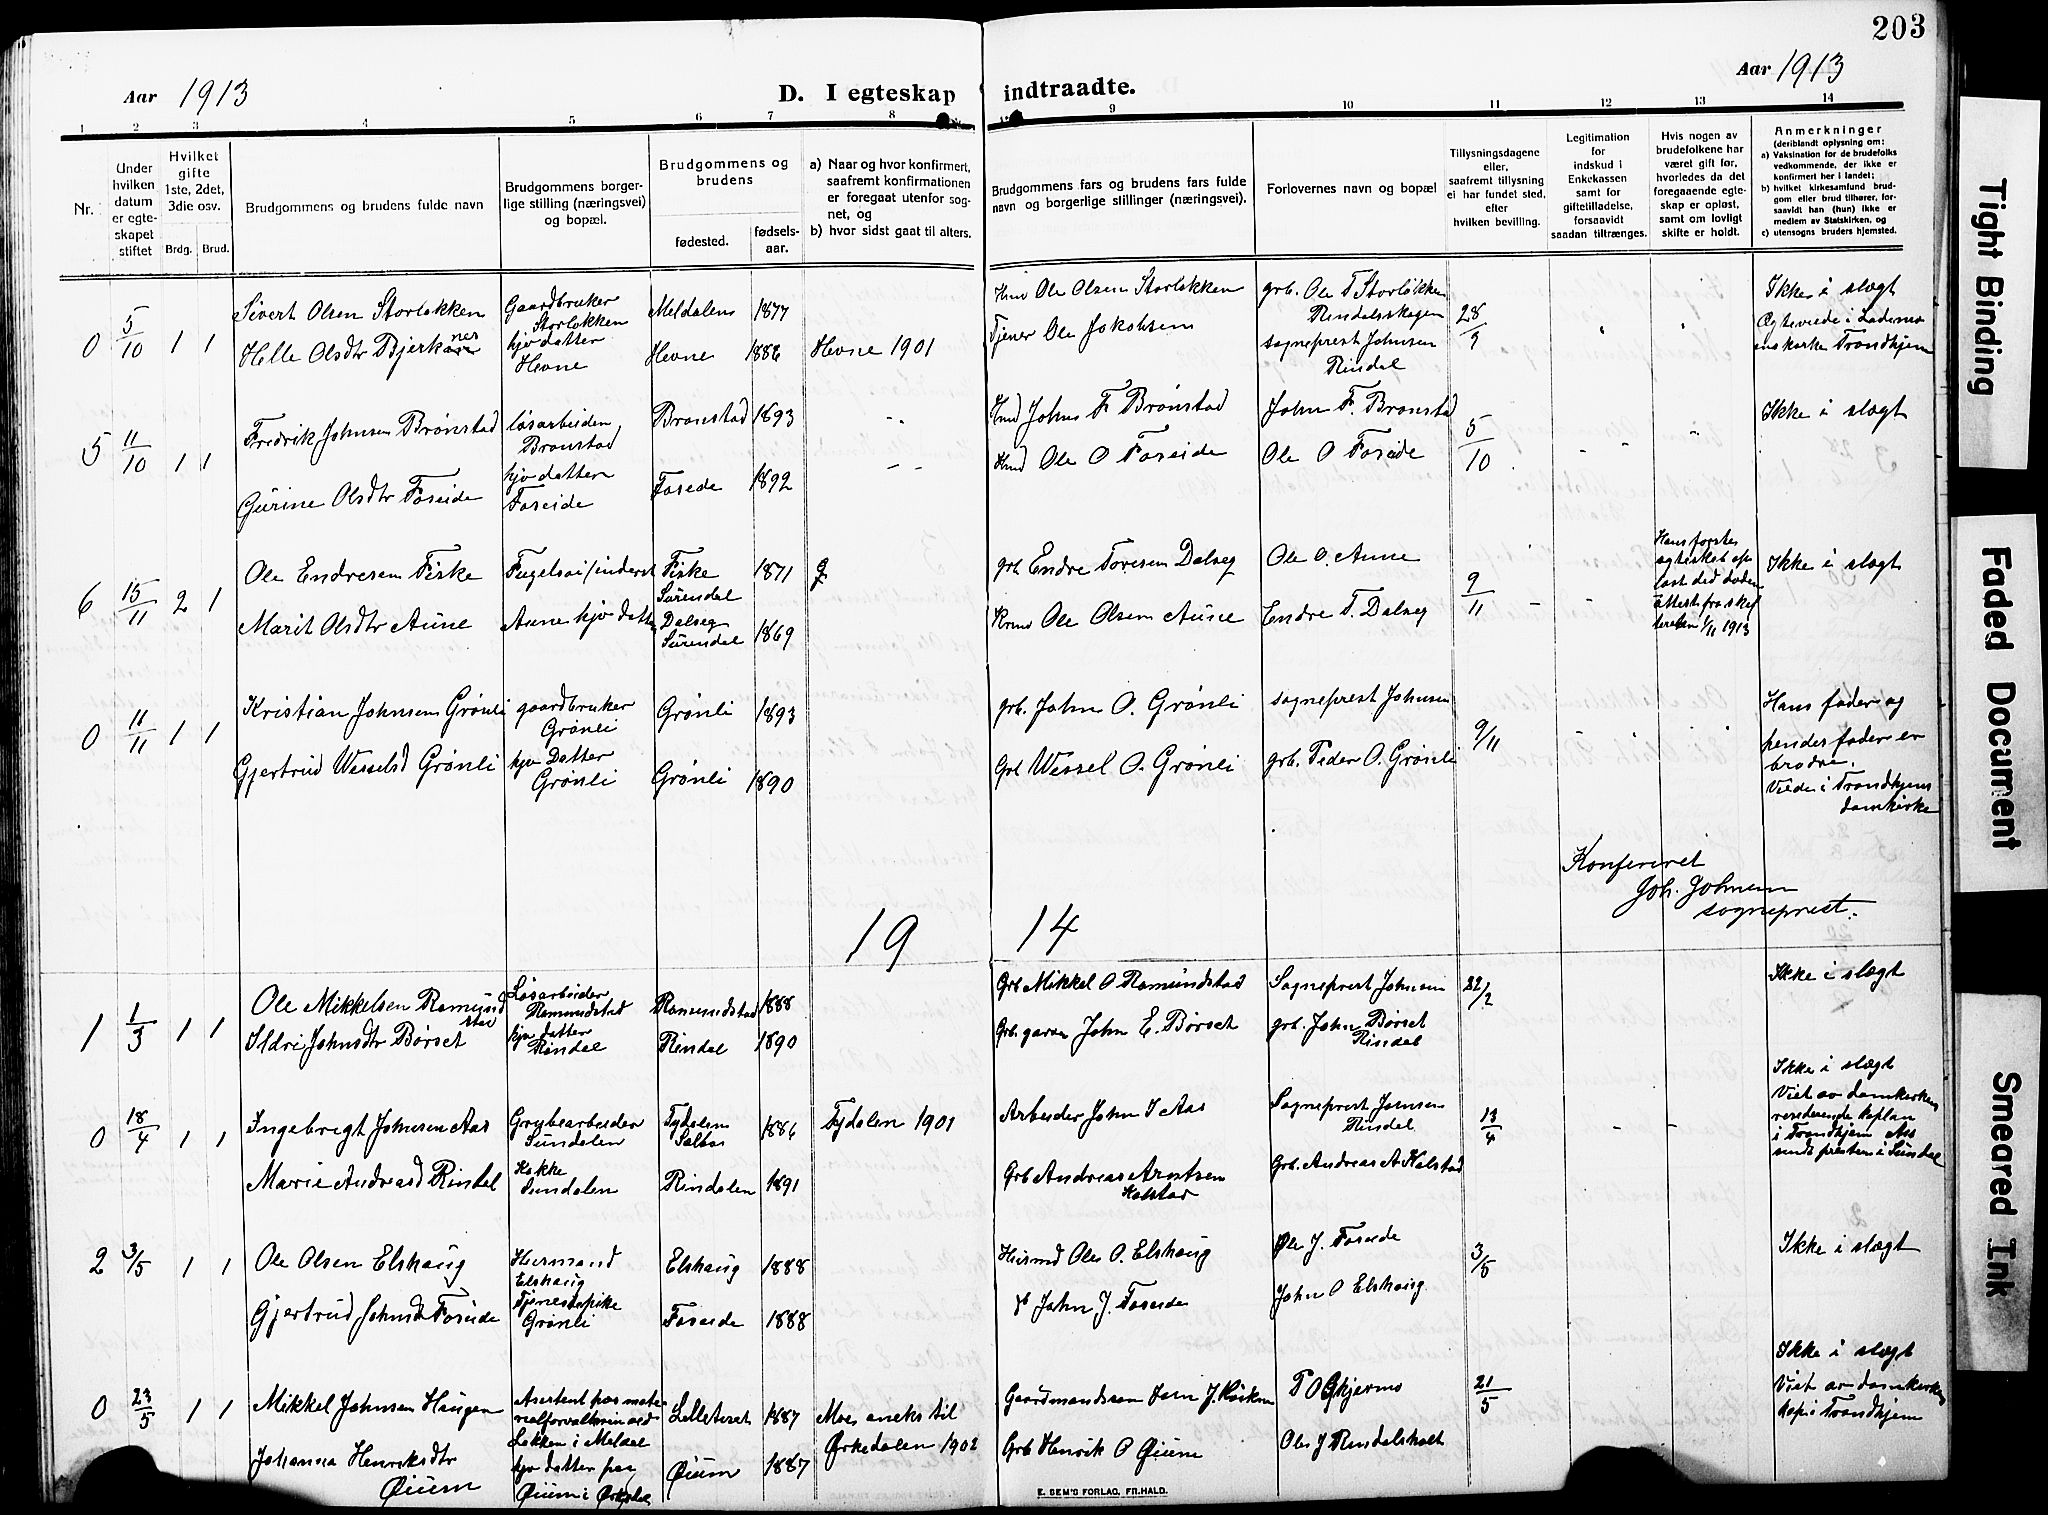 203
Aar 1913
D. I egteskap indtraadte.
Aar 1913
1 2 3 4 5 6 7 8 9 10 11 12 13 14
Nr.
Under hvilken datum er egteskapet stiftet
Hvilket gifte 1ste, 2det, 3die osv.
Brdg. Brud.
Brudgommens og brudens fulde navn
Brudgommens borgerlige stilling (næringsvei) og bopæl.
Brudgommens og brudens
fødested.
fødselsaar.
a) Naar og hvor konfirmert, saafremt konfirmationen er foregaat utenfor sognet, og
b) hvor sidst gaat til alters.
Brudgommens fars og brudens fars fulde navn og borgerlige stillinger (næringsvei).
Forlovernes navn og bopæl
Tillysningsdagene eller, saafremt tillysning ei har fundet sted, efter hvilken bevilling.
Legitimation for indskud i Enkekassen samt for giftetilladelse, forsaavidt saadan tiltrænges.
Hvis nogen av brudefolkene har været gift før, hvorledes da det foregaaende egteskap er opløst, samt om lovligt skifte er holdt.
Anmerkninger (deriblandt oplysning om:
a) Vaksination for de brudefolks vedkommende, der ikke er konfirmert her i landet;
b) hvilket kirkesamfund brudgom eller brud tilhører, forsaavidt han (hun) ikke er medlem av Statskirken, og
c) utensogns bruders hjemsted.
0 5/10 1 1 Sivert Olsen Storløkken Gaardbruker Storløkken Meldalen 1877 Hmd Ole Olsen Storløkken grb. Ole T Storløkken Rindalsskogen 28/9 Ikke i slægt
Helle Olsdtr Bjerkaner hjv datter Hevne Hevne 1886 Hevne 1901 Tjener Ole Jakobsen sogneprest Johnsen Rindal Trondhjem
5 11/10 1 1 Fredrik Johnsen Brønstad løsarbeider Brønstad Brønstad 1893 Hmd John F Brønstad John F. Brønstad 5/10 Ikke i slægt
Gurine Olsdtr Foseide hjv datter Foseide Foseide 1892 Hmd Ole O Foseide Ole O Foseide
6 15/11 2 1 Ole Endresen Fiske Fugelsøi/inderst Fiske Surendal 1871 grb Endre Toresen Dalseg Ole O. Aune 9/11 Hans første Ikke i slægt
Marit Olsdtr Aune Aune hjv datter Dalseg Surendal 1869 Ole Olsen Aune Endre T. Dalseg 1/11 1913
0 11/11 1 1 Kristian Johnsen Grønli gaardbruker Grønli Grønli 1893 grb. John O. Grønli sogneprest Johnsen 9/11 Hans fader og hendes fader er brødre.
Gjertrud Wesselsd Grønli hjv Datter Grønli Grønli 1890 Grb Wessel O. Grønli grb. Peder O. Grønli Viede i Trondhjems domkirke
Konfereret
Joh. Johnsen
sogneprest.
19 14
1 1/3 1 1 Ole Mikkelsen Romundstad Løsarbeider Romundstad Romundstad 1888 Grb Mikkel O Romundstad Sogneprest Johnsen 22/2 Ikke i slægt
Ildri Johnsdtr Børset hjv datter Rindal Rindal 1890 John E. Børset grb. John Børset Rindal
0 18/4 1 1 Ingebrigt Johnsen Aas Grubearbeider Sundalen Tydalen Selbu 1886 Tydalen 1901 Arbeider John I Aas Sogneprest Johnsen Rindal 13/4 Ikke i slægt Viet av domkirkens residerende kaplan i Trondhjem
Marie Andreasd Rindal Kokke Sundalen Rindalen 1891 Grb Andreas Arntsen Kalstad Grb. Andreas A Kalstad
2 3/5 1 1 Ole Olsen Elshaug Husmand Elshaug Elshaug 1888 Husmd Ole O. Elshaug Ole J. Foseide 3/5 Ikke i slægt
Gjertrud Johnsd Foseide Tjenestepike Grønli Foseide 1888 John J. Foseide John O Elshaug
0 23/5 1 1 Mikkel Johnsen Haugen Løkken i Meldal Lilleteret 1887 Moe aneks til Orkedalen 1902 21/5 Ikke i slægt Viet av domkirkens kap i Trondhjem
Johanna Henriksdtr Øium hjv datter paa Øium i Orkedal Øium 1887 Grb Henrik O Øium Ole J Rindalsholt
E. SEM'S FORLAG, FR.HALD.
Tight Binding
Faded Document
Smeared Ink